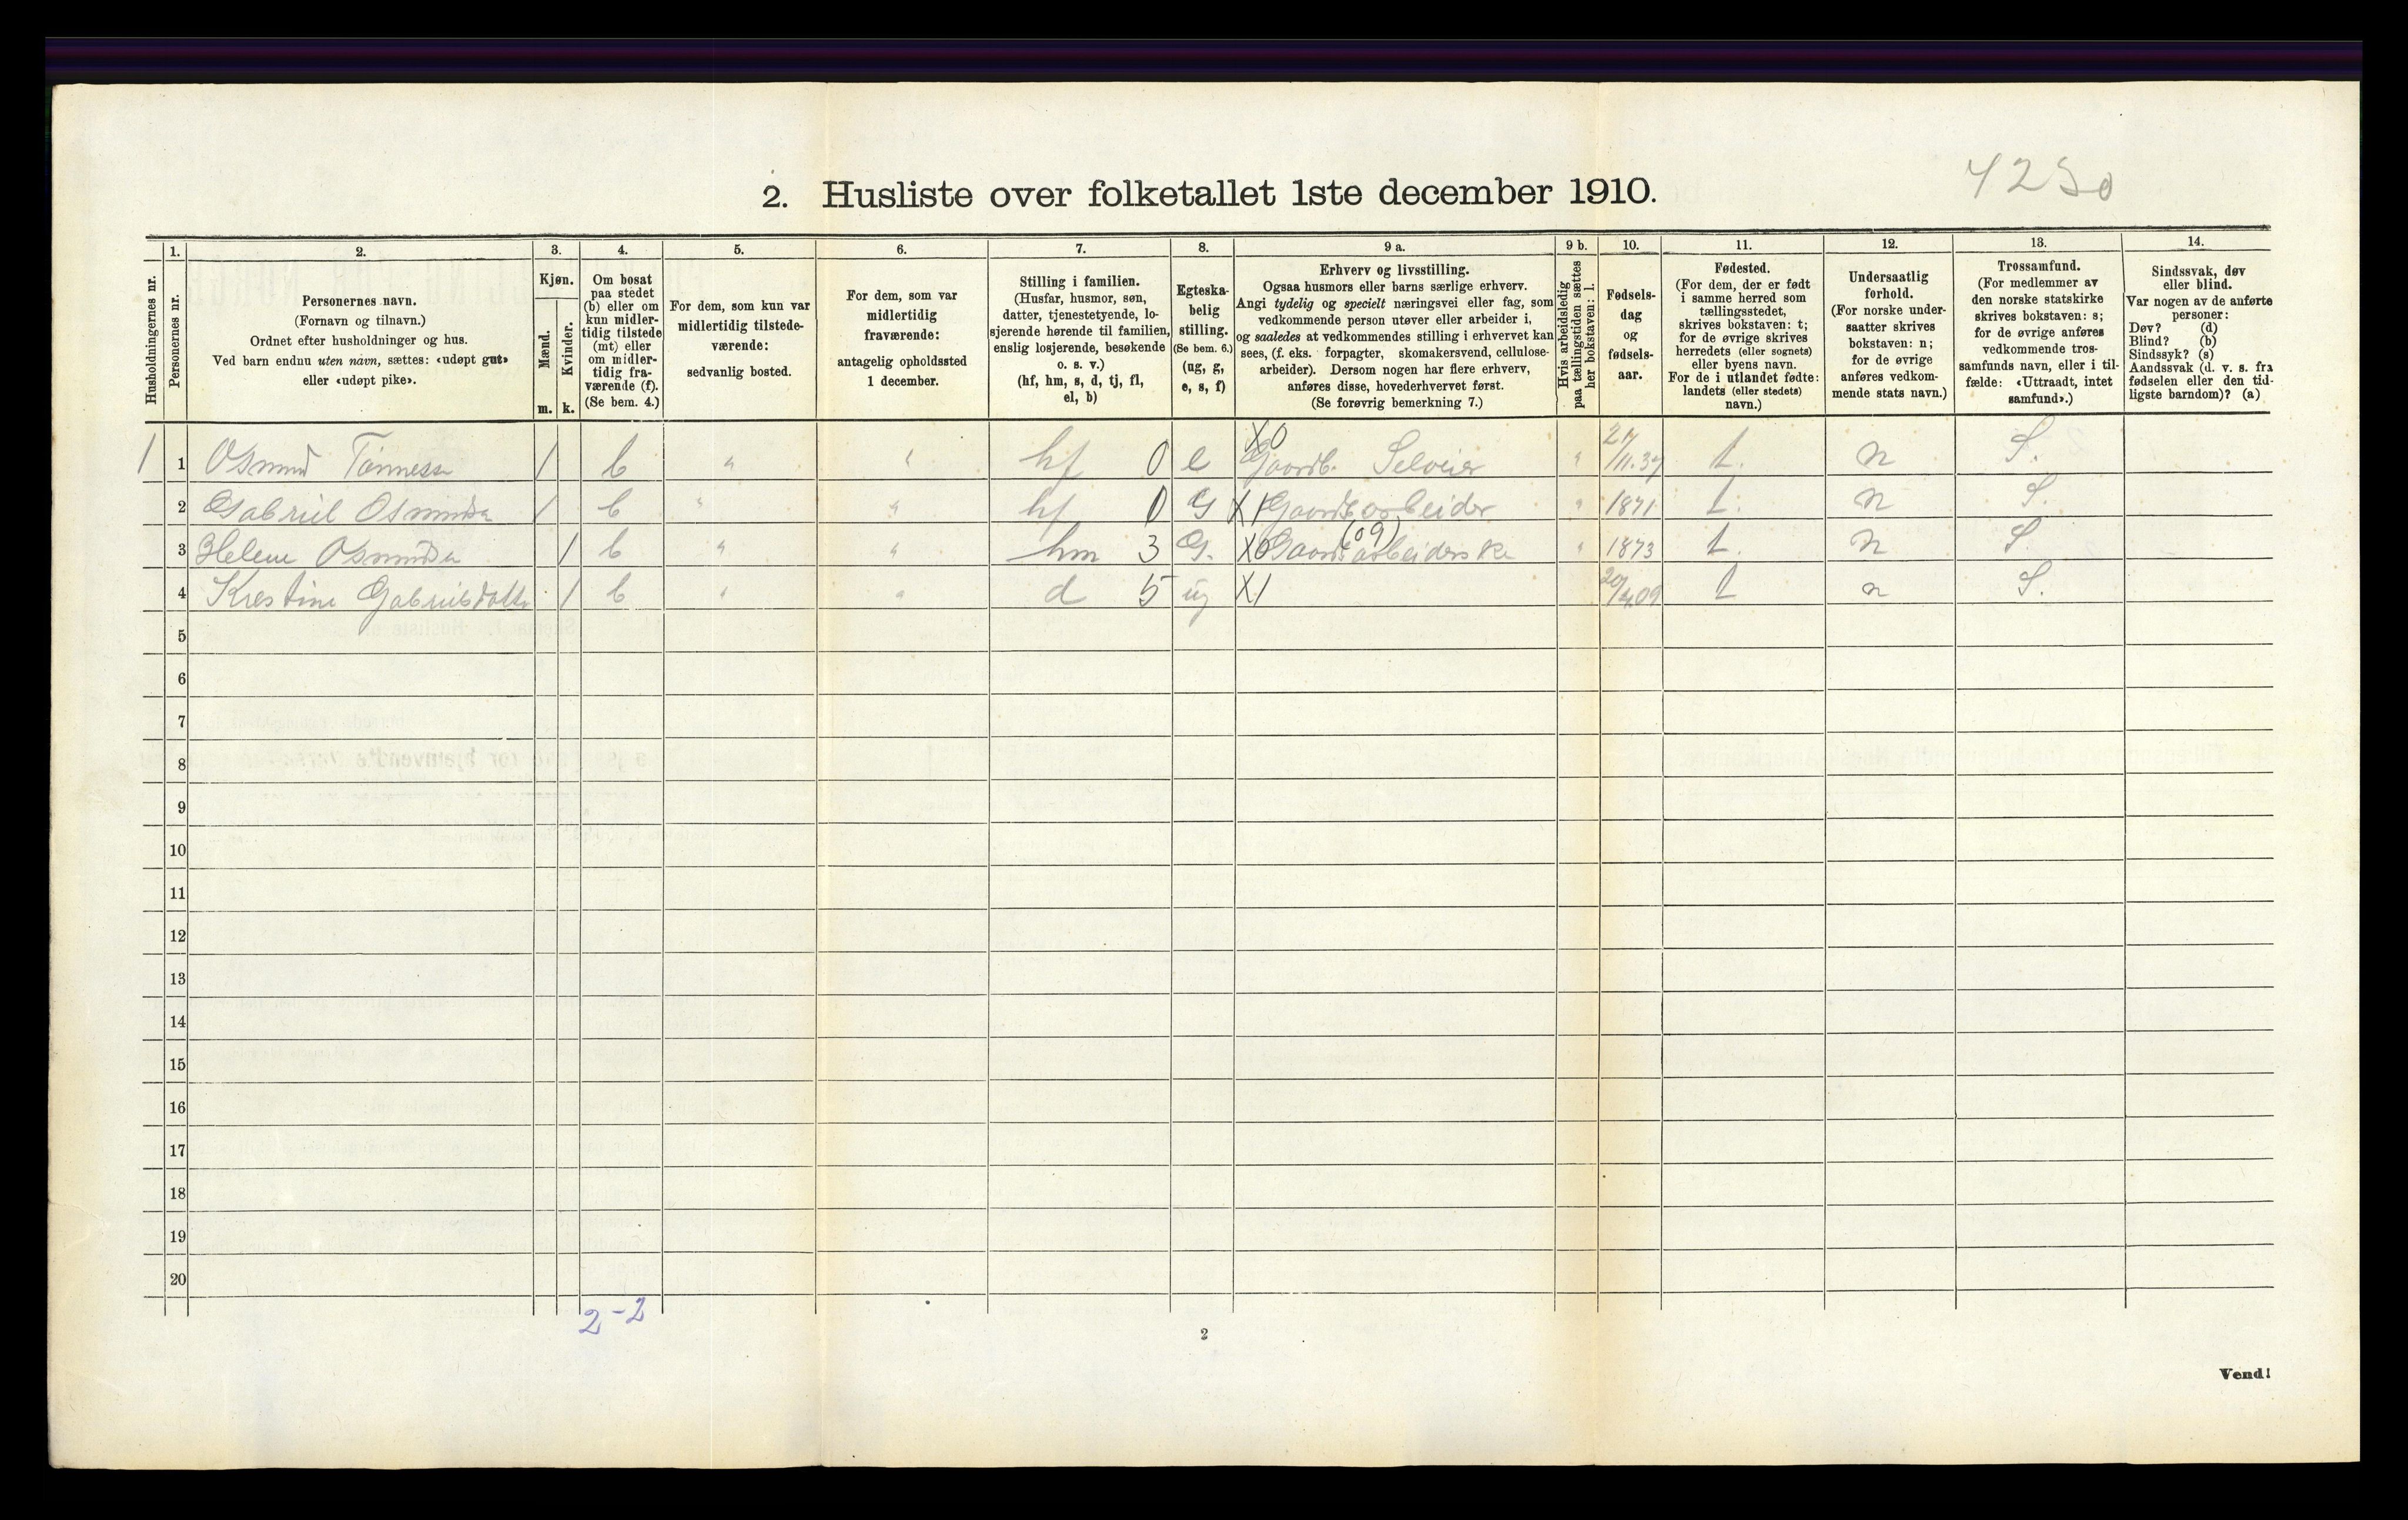 4250
2. Husliste over folketallet 1ste december 1910.
Husholdningernes nr.
1.
Personernes nr.
2.
Personernes navn.
(Fornavn og tilnavn.)
Ordnet efter husholdninger og hus.
Ved barn endnu uten navn, sættes: «udøpt gut»
eller «udøpt pike».
3.
Kjøn.
Mænd.
Kvinder.
m. k.
4.
Om bosat
paa stedet
(b) eller om
kun midler-
tidig tilstede
(mt) eller
om midler-
tidig fra-
værende (f).
(Se bem. 4.)
5.
For dem, som kun var
midlertidig tilstede-
værende:
sedvanlig bosted.
6.
For dem, som var
midlertidig
fraværende:
antagelig opholdssted
1 december.
7.
Stilling i familien.
(Husfar, husmor, søn,
datter, tjenestetyende, lo-
sjerende hørende til familien,
enslig losjerende, besøkende
o. s. v.)
(hf, hm, s, d, tj, fl,
el, b)
8.
Egteska-
belig
stilling.
(Se bem. 6.)
(ug, g,
e, s, f)
9 a.
Erhverv og livsstilling.
Ogsaa husmors eller barns særlige erhverv.
Angi tydelig og specielt næringsvei eller fag, som
vedkommende person utøver eller arbeider i,
og saaledes at vedkommendes stilling i erhvervet kan
sees, (f. eks. forpagter, skomakersvend, cellulose-
arbeider). Dersom nogen har flere erhverv,
anføres disse, hovederhvervet først.
(Se forøvrig bemerkning 7.)
9 b.
Hvis arbeidsledig
paa tællingstiden sættes
her bokstaven: l.
10.
Fødsels-
dag
og
fødsels-
aar.
11.
Fødested.
(For dem, der er født
i samme herred som
tællingsstedet,
skrives bokstaven: t;
for de øvrige skrives
herredets (eller sognets)
eller byens navn.
For de i utlandet fødte:
landets (eller stedets)
navn.)
12.
Undersaatlig
forhold.
(For norske under-
saatter skrives
bokstaven: n;
for de øvrige
anføres vedkom-
mende stats navn.)
13.
Trossamfund.
(For medlemmer av
den norske statskirke
skrives bokstaven: s;
for de øvrige anføres
vedkommende tros-
samfunds navn, eller i til-
fælde: «Uttraadt, intet
samfund».)
14.
Sindssvak, døv
eller blind.
Var nogen av de anførte
personer:
Døv? (d)
Blind? (b)
Sindssyk? (s)
Aandssvak (d. v. s. fra
fødselen eller den tid-
ligste barndom)? (a)
1 1 Osmund Tønnesen 1 b " " hf 0 e X0 Gaardb. Selveier " 27/11.37 t. n S.
2 Gabriel Osmundsen 1 b " " hf 0 G X1 Gaardsarbeider " 1871 t. n S.
3 Helene Osmundsen 1 b " " hm 3 G. X0 Gaardsarbeiderske (09) " 1873 t. n S
4 Krestine Gabrielsdatter 1 b " " d 5 ug X1 20/4.09 t n S.
5
6
7
8
9
10
11
12
13
14
15
16
17
18
19
20
2-2
2
Vend!